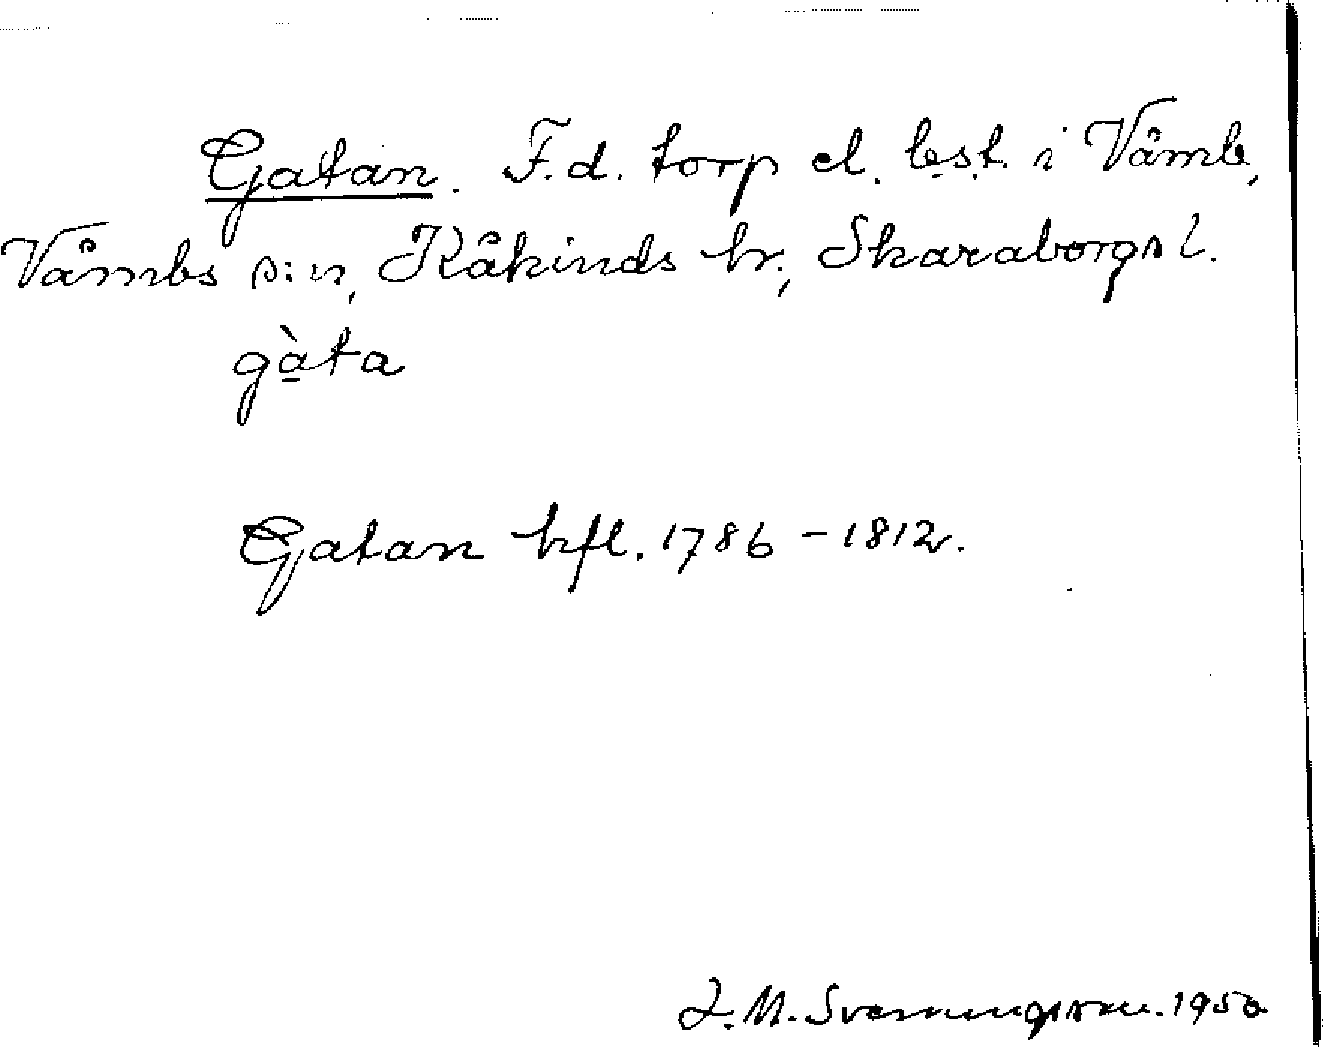 Gatan. F.d. torp el. bst. i Våmb,
Våmbs s:n, Kåkinds hr., Skaraborgs l.
gàta
Gatan hfl. 1786 – 1812.
J. M. Svenungsson. 1950